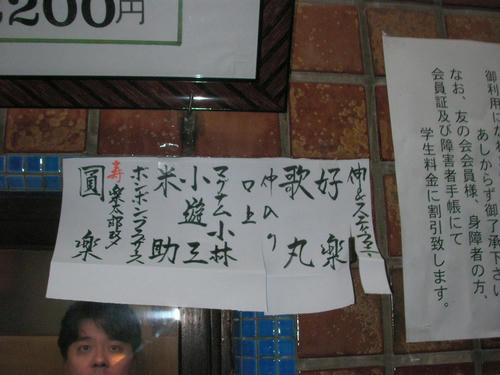 200円
御利用に
あしからず御了承下さい
なお、友の会会員様、身障者の方、
会員証及び障害者手帳にて
学生料金に割引致します。
好楽
歌丸
仲入り
口上
マグナム小林
小遊三
米助
ボンボンブラザース
寿 楽太郎改メ
圓楽